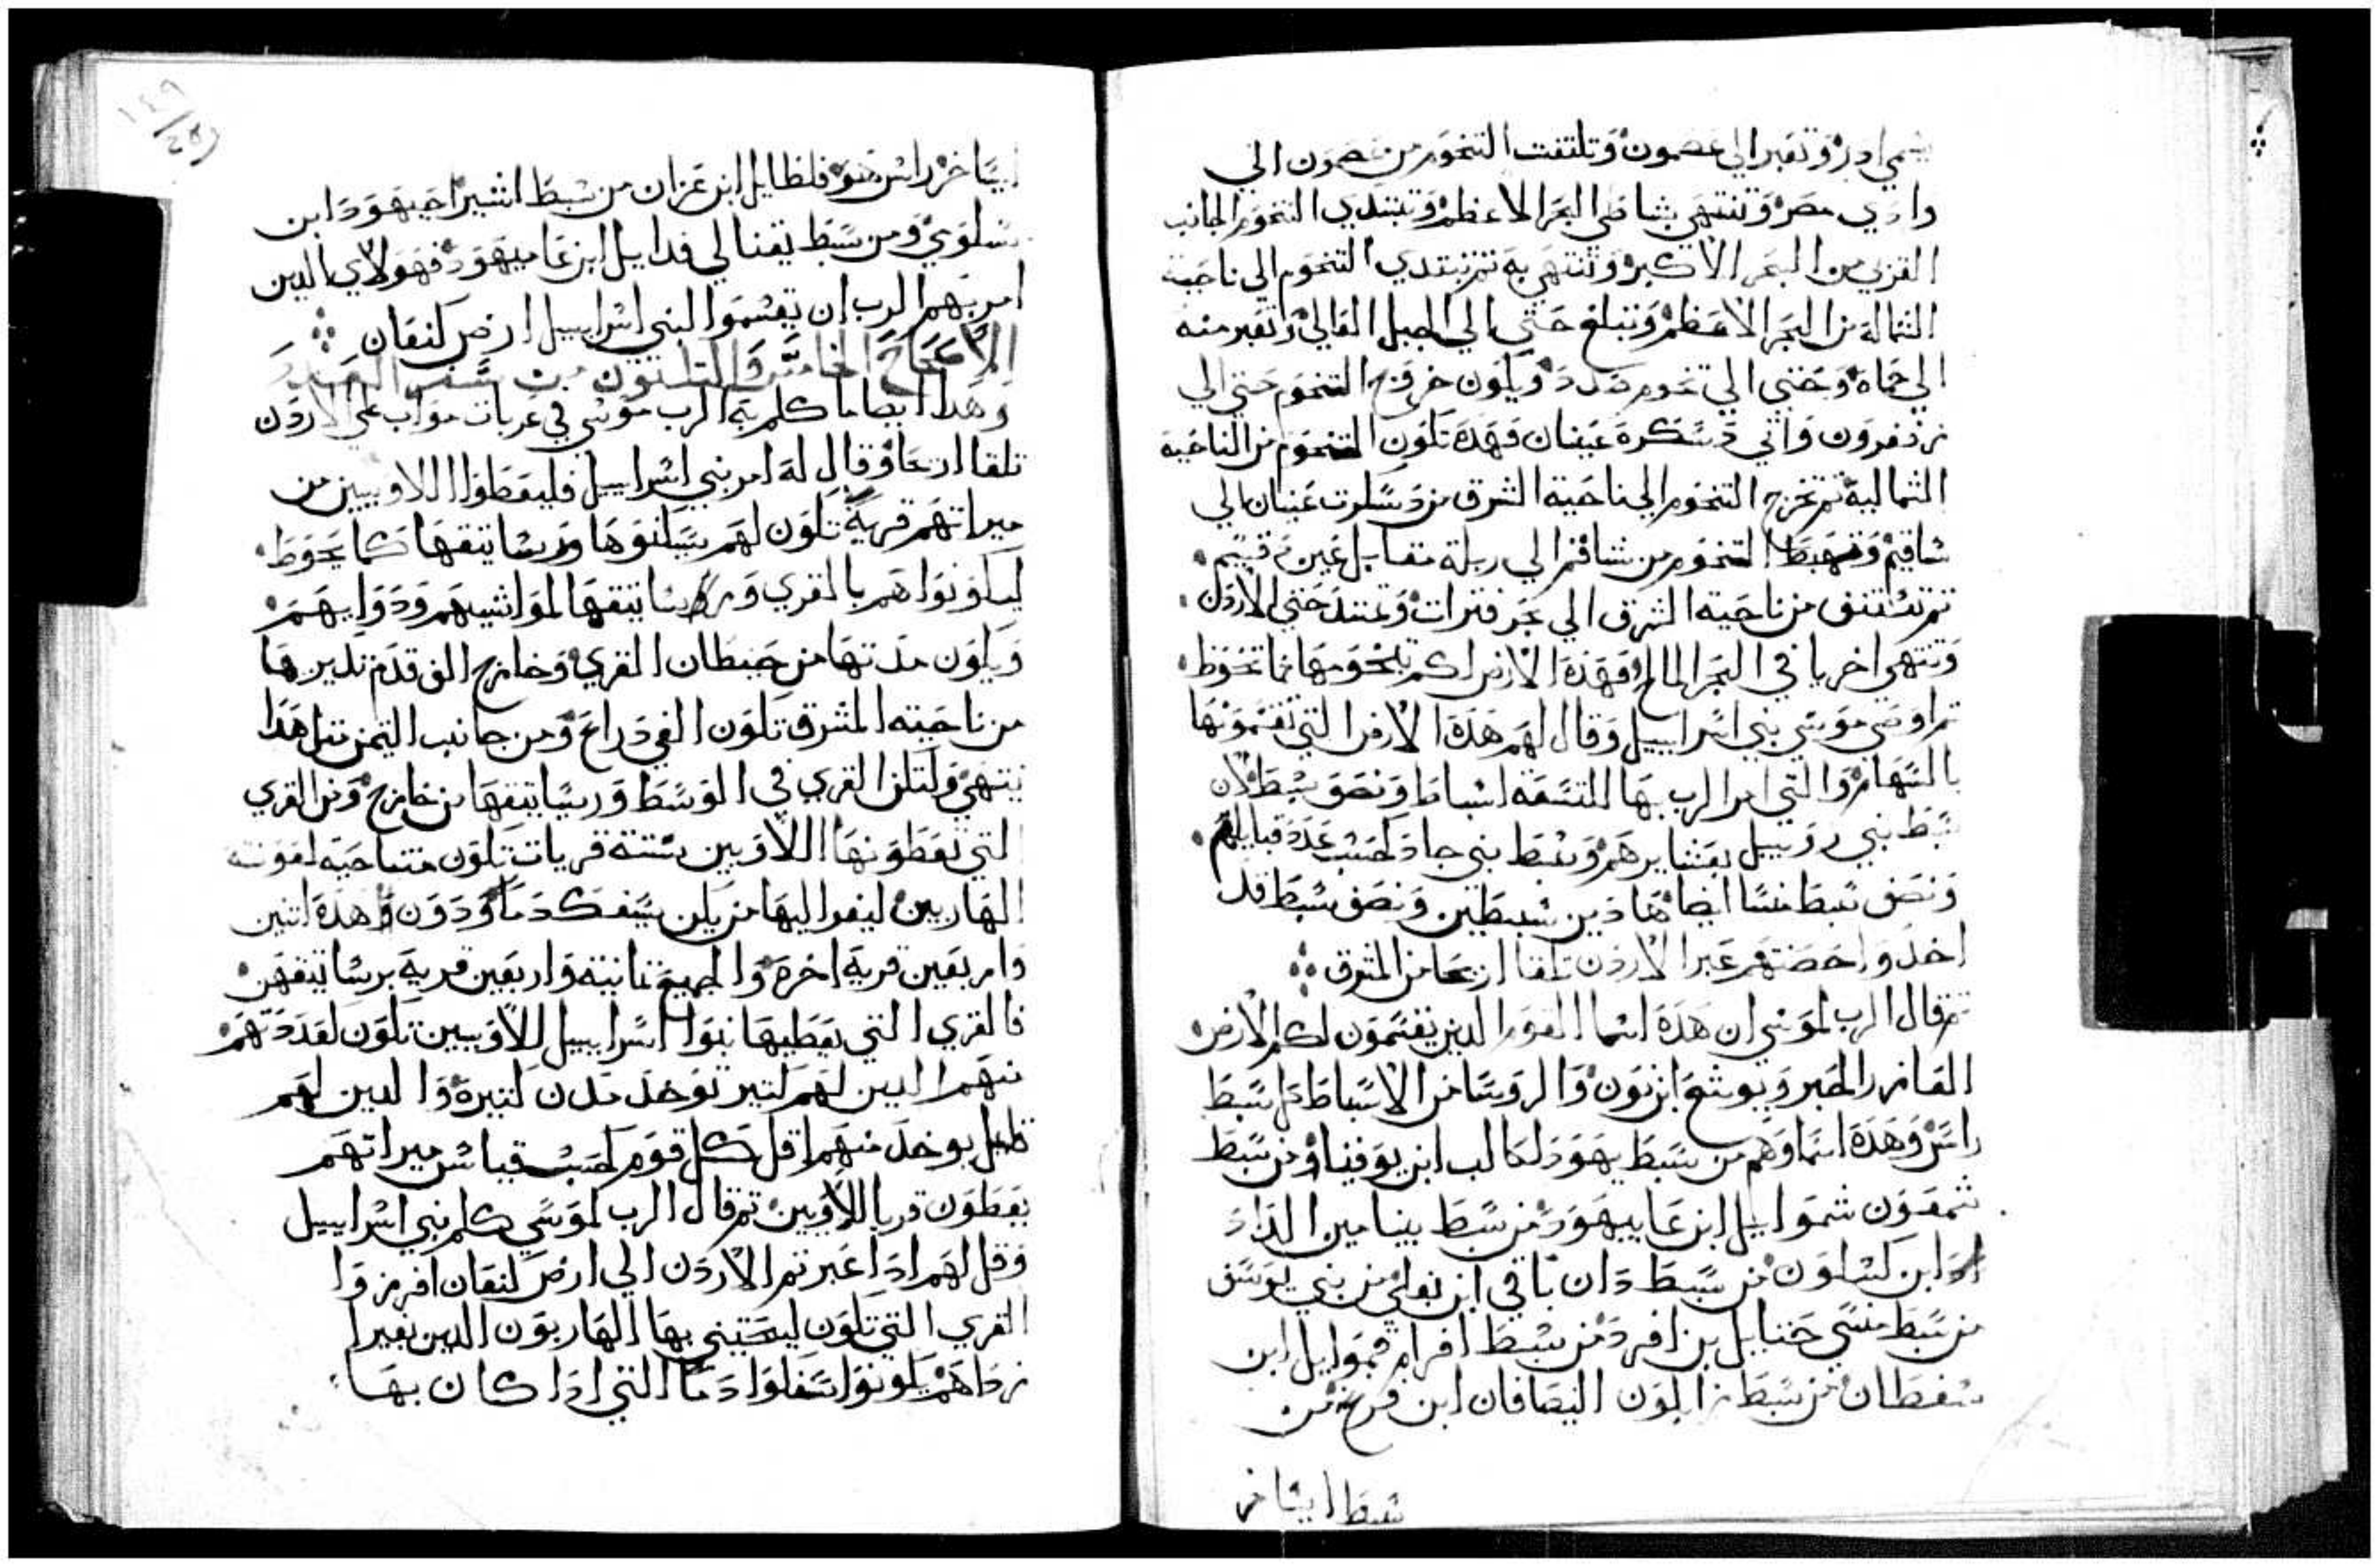 يسمي ادر وتعبر الي عصمون وتلتفت التخوم من عصمون الي
وادي مصر وتنتهي بشاطي البحر الاعظم وتبتدي التخوم الجانب
الغربي من البحر الاكبر وتنتهي به تم تبتدي التخوم الي ناحية
الشمالة من البحر الاعظم وتبلغ حتي الي الجبل العالي وتعبر منه
الي حماه وحتي الي تخوم صدد ويكون خروج التخوم حتي الي
زدفرون واتي دسكرة عينان فهده تكون التخوم من الناحية
الشمالية تم تخرج التخوم الي ناحية الشرق من دسكرت عينان الي
شاقيم وتهبط التخوم من شاقم الي ربلة مقابل عين
تم تشتق من ناحية الشرق الي بحر فترات وتمتد حتي الاردن
وتنتهي اخريا في البحر المالح فهذه الارض لكم بتخومها بما تحوط
تم اوصي موسي بني اسراييل وقال لهم هذه الارض التي تقسمونها
بالسهام والتي امر الرب بها للتسعه اسباط ونصف سبط لان
سبط بني روبييل بعشايرهم وسبط بني جاد كحسب عدد قبايلهم
ونصف سبط منسا ايضا هاذين سبطين ونصف سبط قد
اخدوا حصتهم عبر الاردن تلقا اريحا من المشرق
تم قال الرب لموسي ان هذه اسما القوم الدين يقسمون لكم الارض
العازر الحبر ويوشع ابن نون والروسا من الاسباط كل سبط
راس وهده اسماوهم من سبط يهودا كالب ابن يوفنا ومن سبط
شمعون شموايل ابن عاميهود من سبط بينامين الداد
ابن كسلون من سبط دان باقي ابن يغلي من بني يوسف
من سبط منسي حنايل بن افرد من سبط افرام قموايل ابن
سفطان من سبط زابلون اليصافان ابن فرخ من
سبط ايساخر
ايساخر راس هو فلطايل ابن عزان من سبط اشير احيهود ابن
سلومي ومن سبط نفتالي فدايل ابن عاميهود فهولاي الدين
امر بهم الرب ان يقسموا لبني اسراييل ارض كنعان
الاصحاح الخامس والتلتون من سفر العدد
وهدا ايضا ما كلم به الرب موسي في عربات مواب علي الاردن
تلقا اريحا وقال له امر بني اسراييل فليعطوا اللاويين من
ميراتهم قرية تكون لهم يسكنوها وربساتيقها كما تحوط
ليكونوا هم بالقري وربساتيقها لمواشيهم ودوابهم
ويكون مدتها من حيطان القري وخارج الف قدم تديرها
من ناحيته المشرق تكون الفي دراع ومن جانب اليمن متل هدا
ينتهي ولتكن القري في الوسط وربساتيقها من خارج ومن القري
التي تعطونها اللاويين ستة قريات تكون متناحية لغوتة
الهاربين ليفوا اليها من يكن يسفك دما ودون هده اتنين
واربعين قرية اخرة والجميع تمانية واربعين قرية برساتيقهن
فالقري التي يعطيها بنوا اسراييل للاويين تكون لعددهم
منهم الدين لهم كتير توخد مدن كتيرة والدين لهم
قليل يوخد منهم اقل كل قوم كحسب قياس ميراتهم
يعطون قريا اللاويين تم قال الرب لموسي كلم بني اسراييل
وقل لهم ادا عبرتم الاردن الي ارض كنعان افرزوا
القري التي تكون ليحتمي بها الهاربون الدين بغير
رضاهم يكونوا سفكوا دما التي ادا كان بها